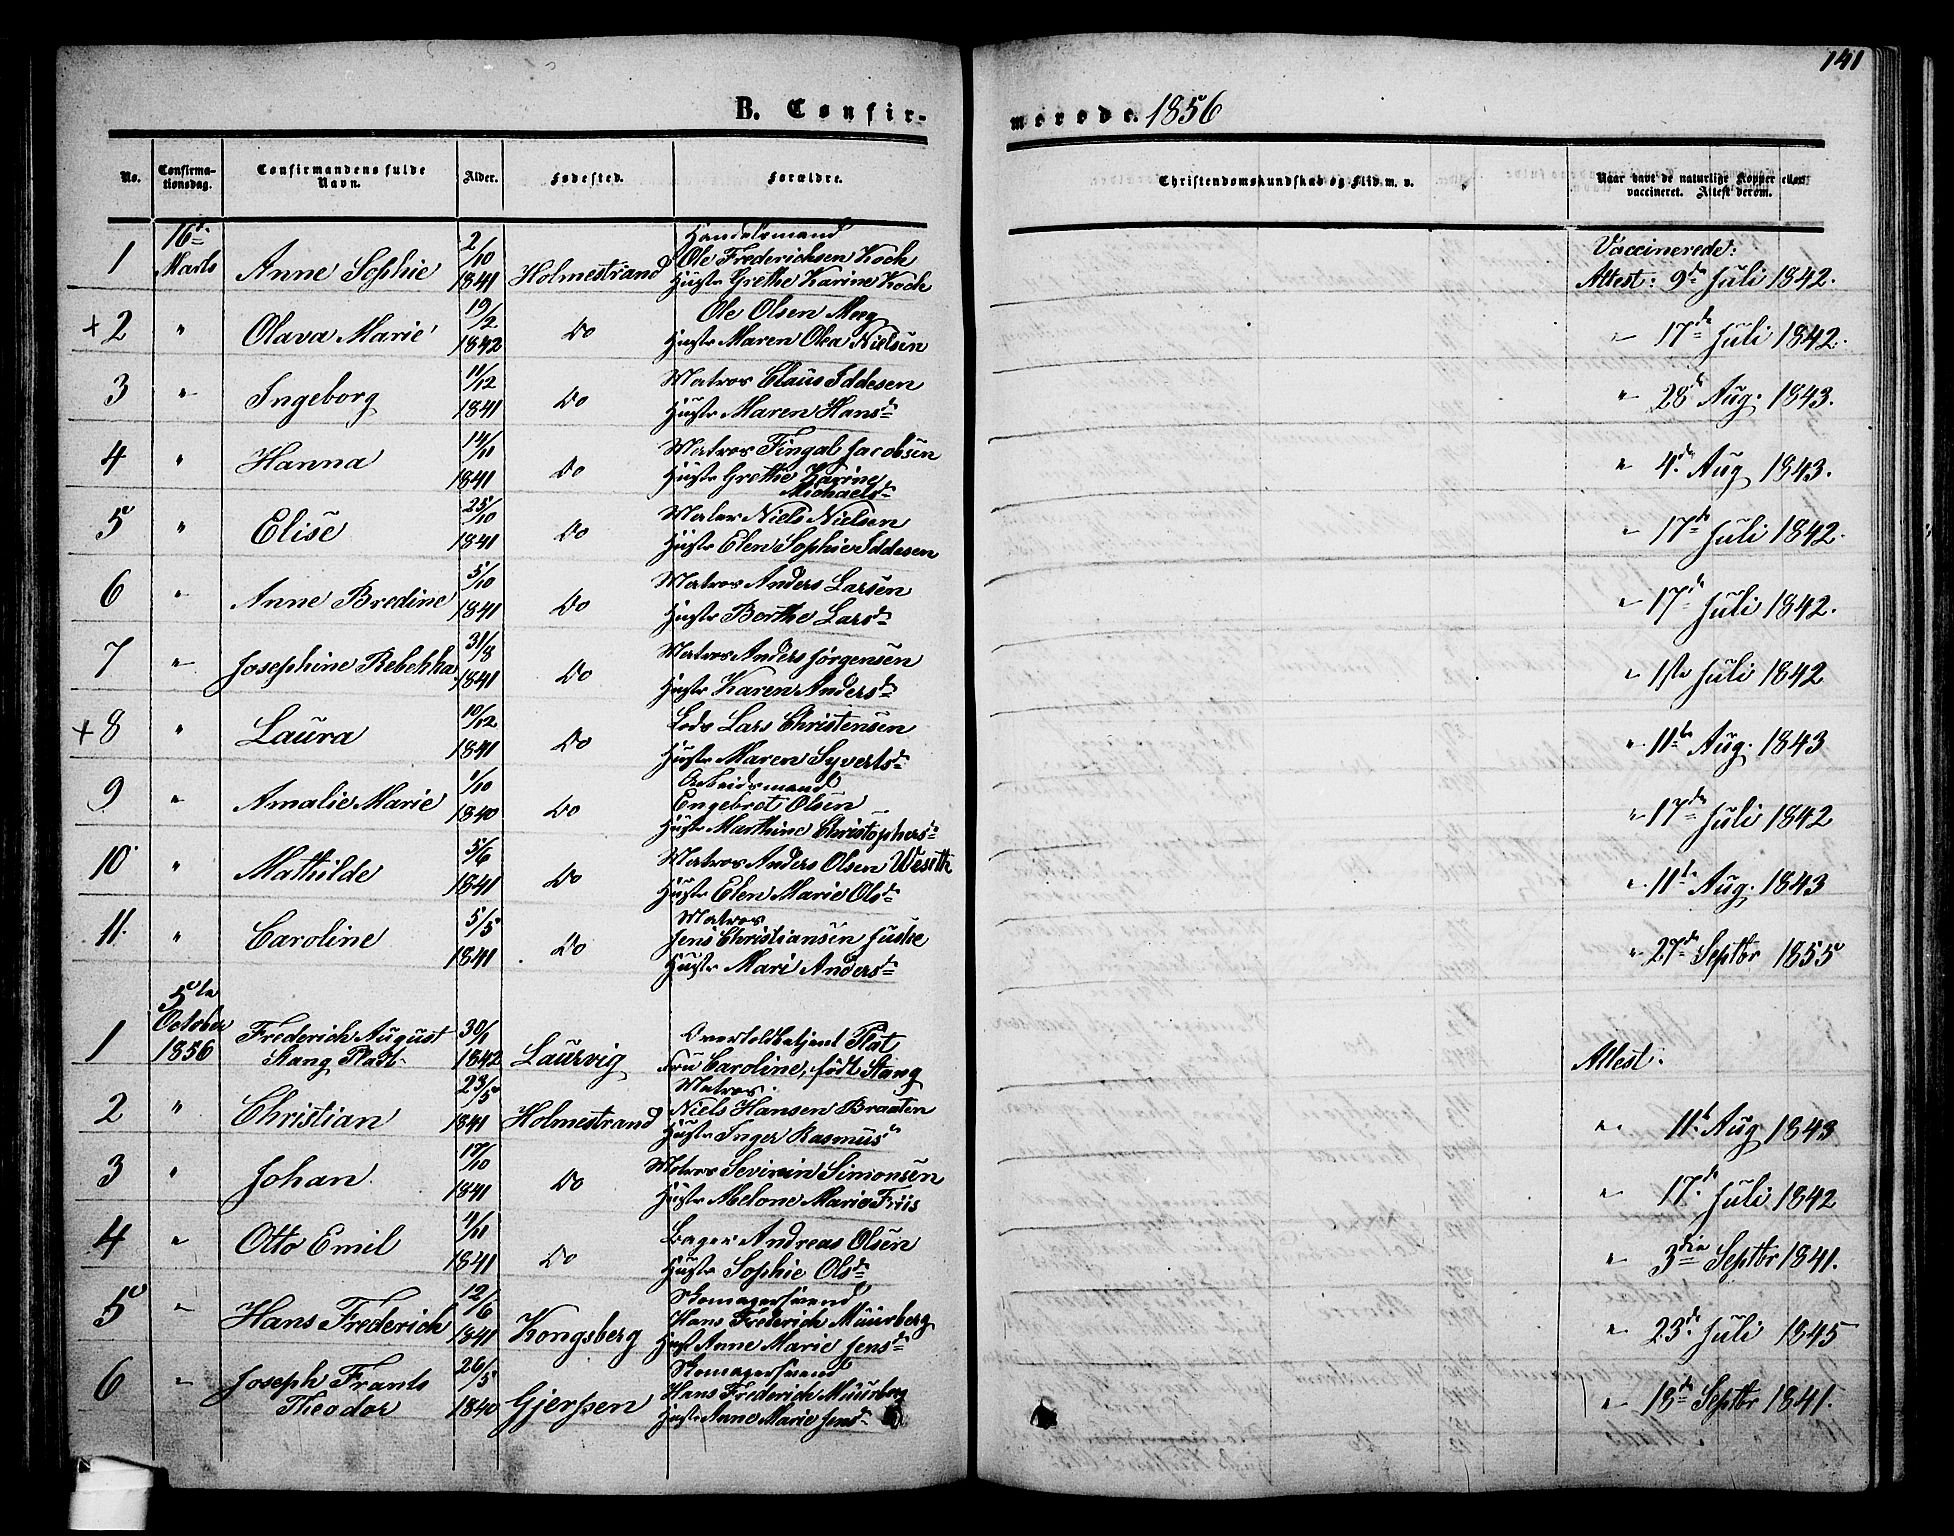 141
B. Confir-
merede. 1856
No.
Confirma-
tionsdag.
Confirmandens fulde
Navn.
Alder.
Fødested.
Forældre.
Christendomskundskab og Flid m. v.
Naar havt de naturlige Kopper eller
vaccineret. Attest derom.
1 16de Marts Anne Sophie 2/10 1841 Holmestrand
Handelsmand
Ole Frederichsen Koch
Hustr Grethe Karine Koch
Vaccinerede:
Attest: 9de Juli 1842.
+2 " Olava Marie 19/2 1842 Do
Ole Olsen Moeg
Hustr Maren Olea Nielsen
" 17de Juli 1842.
3 " Ingeborg 11/12 1841 Do
Matros Claus Iddesen
Hustr Maren Hansd
" 28de Aug. 1843.
4 " Hanna 14/11 1841 Do
Matros Fingal Jacobsen
Hustr Grethe Karine
Michaelsd
" 4de Aug 1843.
5 " Elise 25/10 1841 Do
Maler Niels Nielsen
Hustr Elen Sophie Iddesen
" 17de Juli 1842.
6 " Anne Bredine 5/10 1841 Do
Matros Anders Larsen
Hustr Berthe Larsd
" 17de Juli 1842.
7 " Josephine Rebekka 31/8 1841 Do
Matros Anders Jørgensen
Hustr Karen Andersd
" 1ste Juli 1842
+8 " Laura 10/12 1841 Do
Lods Lars Christensen
Hustr Maren Syvertsd
" 11te Aug. 1843
9 " Amalie Marie 1/10 1840 Do
Arbeidsmand
Engebret Olsen
Hustr Marthine Christophersd
" 17de Juli 1842
10 " Mathilde 5/6 1841 Do
Matros Anders Olsen Weseth
Hustr Elen Marie Olsd
" 11te Aug. 1843
11. " Caroline 5/5 1841 Do
Matros
Jens Christiansen Juske
Hustr Mari Andersd
" 27de Septbr 1855
5te
October
1856
1 Frederich August
Stang Platt 30/1 1842 Laurvig
Overtoldbetjent Plat
Fru Caroline, født Stang
Attest:
2 " Christian 23/5 1841 Holmestrand
Matros
Niels Hansen Braaten
Hustr Inger Rasmusd
" 11te Aug 1843
3 " Johan 17/10 1841 Do
Matros Severin Simonsen
Hustr Melone Maria Friis
" 17de Juli 1842
4 " Otto Emil 1/11 1841 Do
Bager Andreas Olsen
Hustr Sophie Olsd
" 3die Septbr 1841.
5 " Hans Frederich 12/6 1841 Kongsberg
Skomagersvend
Hans Frederich Muurberg
Hust Anne Marie Jensd
" 23de Juli 1845
6 " Joseph Frants
Theodor 26/5 1840 Gjerpen
Skomagersvend
Hans Frederich Muurberg
Hustr Anne Marie Jensd
" 18de Septbr 1841.